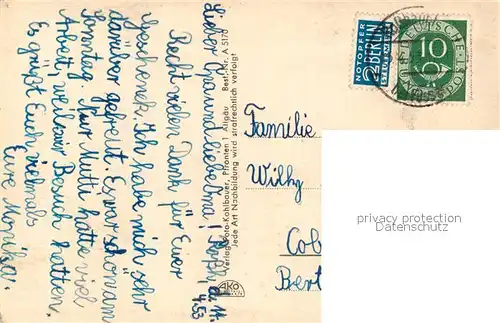 Lieber Opa und liebe Oma!
Recht vielen Dank für Euer
Geschenk. Ich habe mich sehr
darüber gefreut. Es war schon am
Sonntag. Nur Mutti hatte viel
Arbeit, weil wir Besuch hatten.
Es grüßt Euch vielmals
Eure Monika.
den 14.
4.53
Verlag Foto-Kohlbauer, Pfronten 1 Allgäu Best.-Nr. A 5170
Jede Art Nachbildung wird strafrechtlich verfolgt
AKO
NOTOPFER
2 BERLIN
STEUERMARKE
DEUTSCHE POST
10
Familie
Willy
Cob
Bert
privacy protection
Datenschutz